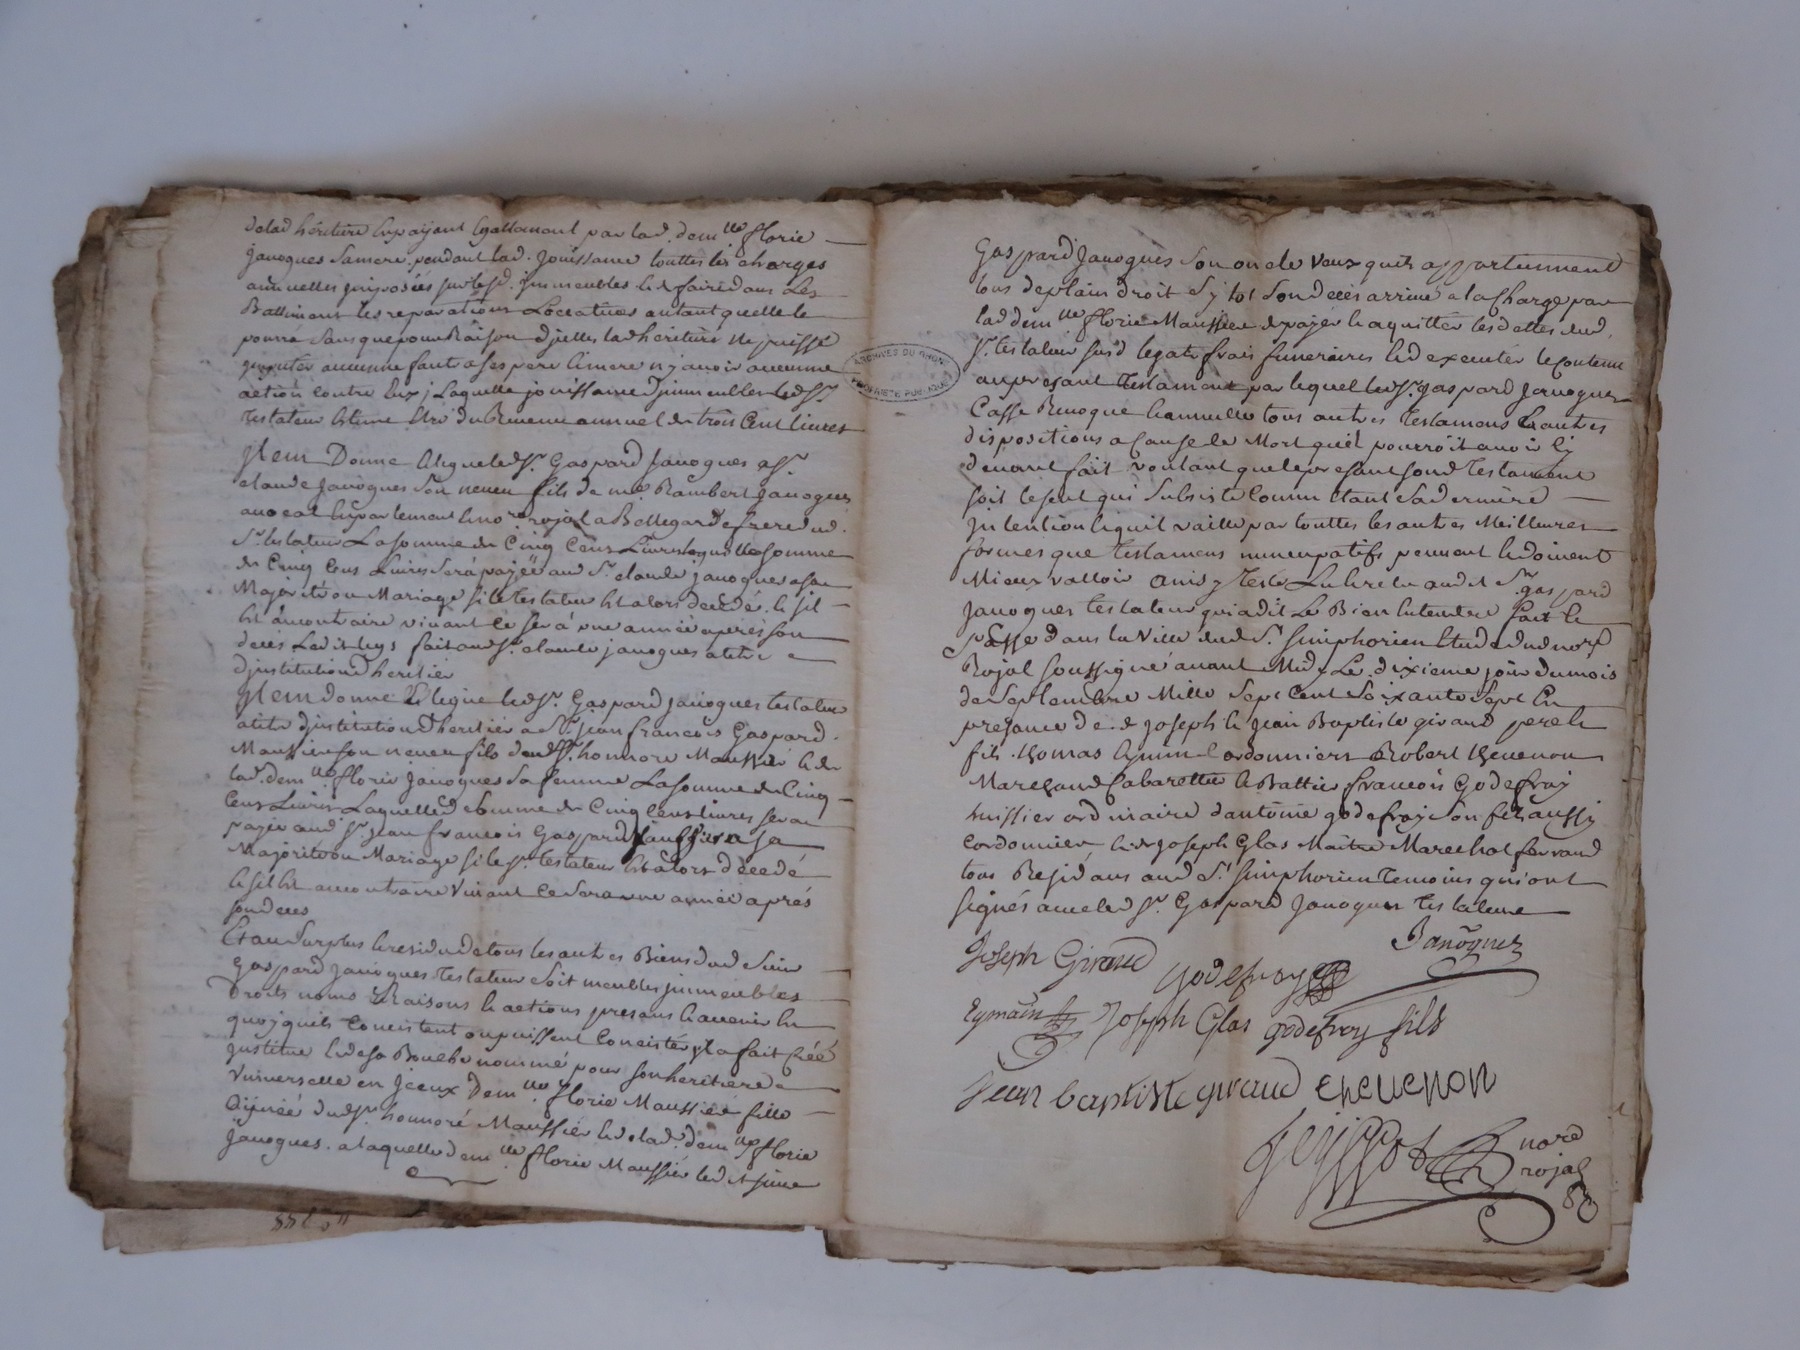 delad héritière en payant egallement par lad. dem.lle florie
janoques sa mere. pendant lad. jouissance touttes les charges
annuelles imposées sur lesd. immeubles & de faire dans les
Battimans les reparations Locatives autant quelle le
pourra sans que pour Raison djcelles lad héritière ne puisse
jmputer aucunne faute a ses pere & mere ny avoir aucunne
action contre Eux; Laquelle jouissance djmmeubles led Sr.
testateur Estime Etre du Revenu annuel de trois Cent livres
Jtem Donne & legue led Sr. Gaspard Janoques a Sr.
claude Janoques son neveu fils de me. Rambert Janoques
avocat en parlement & no.re rojal a Bellegarde frere dud.
Sr. testateur La somme de Cinq Cens Livres laquelle somme
de Cinq Cens Livres Sera payée aud Sr. claude janoques a sa
Majorité ou Mariage si le testateur est alors decedé. & sil
est au contraire vivant ce sera une année après son
deces Ledit legs fait aud Sr. claude janoques a titre
djnstitution d'heritier
Jtem donne & legue led Sr. Gaspard janoques testateur
a titre djnstitution d'heritier a Sr. jean francois Gaspard.
Maussier son neveu fils dud Sr. honnore Maussier & de
lad. dem.lle florie janoques sa femme La somme de Cinq
Cens Livres Laquelle d somme de Cinq Cens livres sera
payée aud Sr. jean francois Gaspard Maussier a sa
Majorité ou Mariage si led Sr. testateur est alors décedé
& sil est au contraire Vivant ce sera une année aprés
son deces
Et au Surplus & residu de tous les autres Biens dud Sieur
Gaspard Janoques testateur soit meubles jmmeubles
Droits noms Raisons & actions presans & avenir en
quoj quils Concistent ou puissent Concister jl a fait créé
jnstitué & de sa Bouche nommé pour son heritiere
Vniverselle en jceux Dem.lle florie Maussier fille
Ainée dud Sr. honnoré Maussier & de lad. dem.lle florie
Janoques. a laquelle dem.lle florie Maussier led Sieur
Gaspard Janoques son oncle Veux quils appartiennent
tous de plain droit sy tot son deces arrivé a la charge par
lad dem.lle florie Maussier de payer & aquitter les dettes dud.
Sr. testateur susd legats frais funeraires & dexecuter le contenu
au presant testament par lequel led Sr. gaspard Janoques
Casse Revoque & annulle tous autres testamens & autres
dispositions a cause de Mort quil pourroit avoir cy
devant fait voulant que le presant sond testament
soit le seul qui subsiste Comme Etant sa derniere
jntention & quil vaille par touttes les autres Meilleures
formes que testamens nuncupatifs peuvent & doivent
Mieux valloir Ainsy Testé Lu & relu aud Sr. gaspard
Janoques testateur qui a dit Le Bien Entendre fait &
passé dans la Ville dud St. simphorien Etude dud nore
Rojal soussigné avant Midy Le dixieme jour du mois
de septembre Mille sept Cent soixante sept En
presance de Joseph & jean Baptiste giraud pere &
fils thomas Eymin Cordonniers Robert thevenon
Marchand Cabarettier & Battier francois Godefroy
huissier ordinaire dantoine godefroy son fils aussy
Cordonnier & de joseph Glas Maitre Marechal ferrand
tous Residans aud St. simphorien temoins qui ont
signés avec led Sr. Gaspard Janoques testateur
Joseph Giraud Janoques
godefroy
Eymain Joseph Glas godefroy fils
Jean baptiste giraud thevenon
nore
rojal
ARCHIVES DU RHONE
PROPRIETE PUBLIQUE